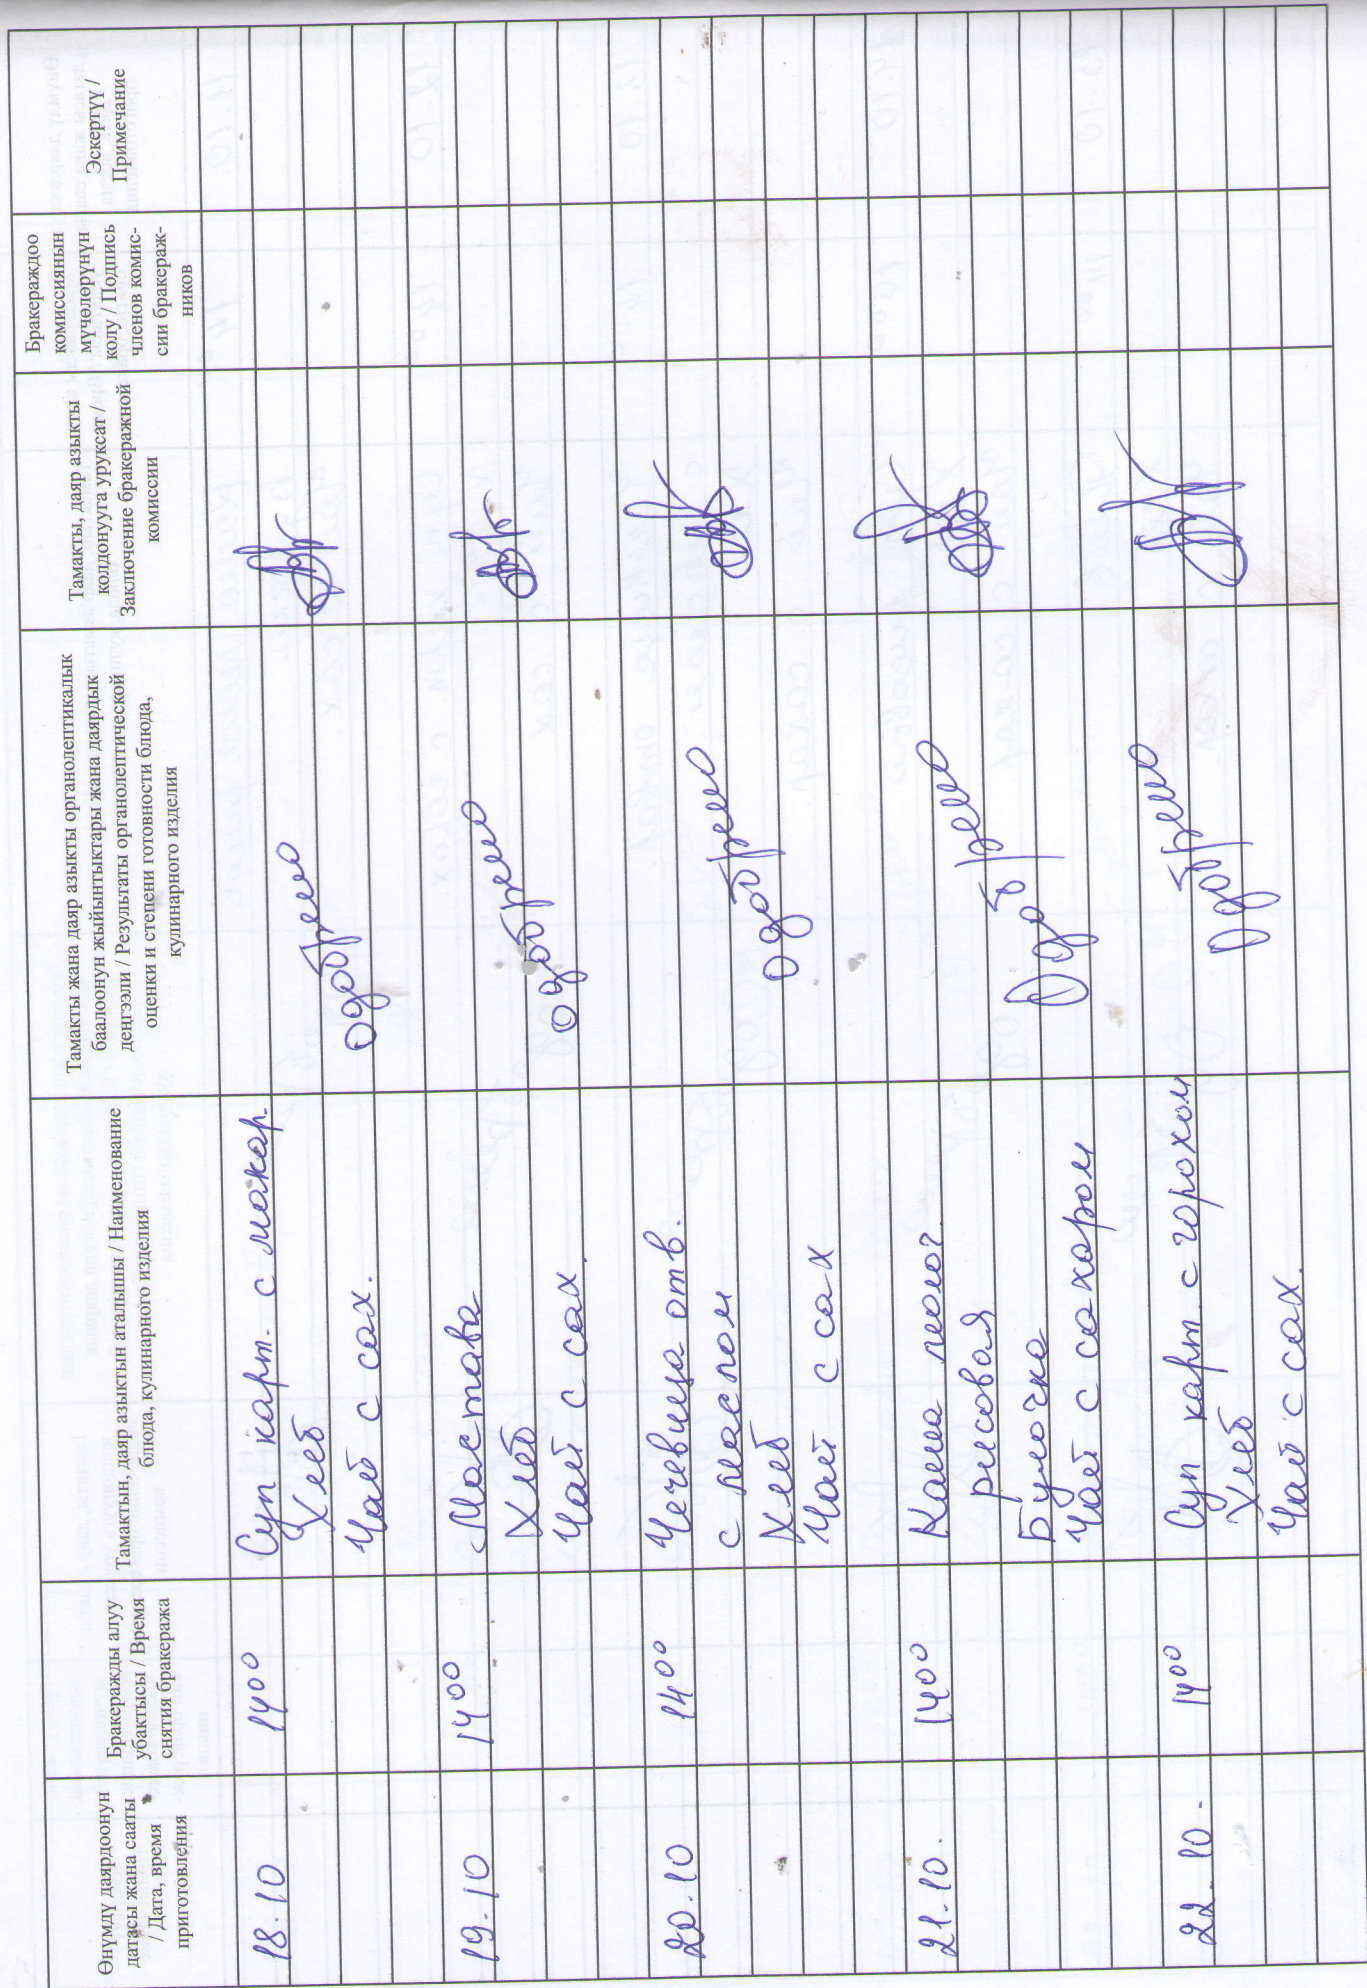 Өнүмдү даярдоонун
датасы жана сааты
/ Дата, время
приготовления
Бракеражды алуу
убактысы / Время
снятия бракеража
Тамактын, даяр азыктын аталышы / Наименование
блюда, кулинарного изделия
Тамакты жана даяр азыкты органолептикалык
баалоонун жыйынтыктары жана даярдык
деңгээли / Результаты органолептической
оценки и степени готовности блюда,
кулинарного изделия
Тамакты, даяр азыкты
колдонууга уруксат /
Заключение бракеражной
комиссии
Бракераждоо
комиссиянын
мүчөлөрүнүн
колу / Подпись
членов комис-
сии бракераж-
ников
Эскертүү /
Примечание
18.10 14⁰⁰ Суп карт. с макар.
Хлеб
Чай с сах.
одобрено
19.10 14⁰⁰ Мастава
Хлеб
Чай с сах.
одобрено
20.10 14⁰⁰ Чечевица отв.
с маслом
Хлеб
Чай с сах
одобрено
21.10. 14⁰⁰ Каша молоч.
рисовая
Булочка
Чай с сахаром
Одобрено
22.10. 14⁰⁰ Суп карт. с горохом
Хлеб
Чай с сах.
Одобрено